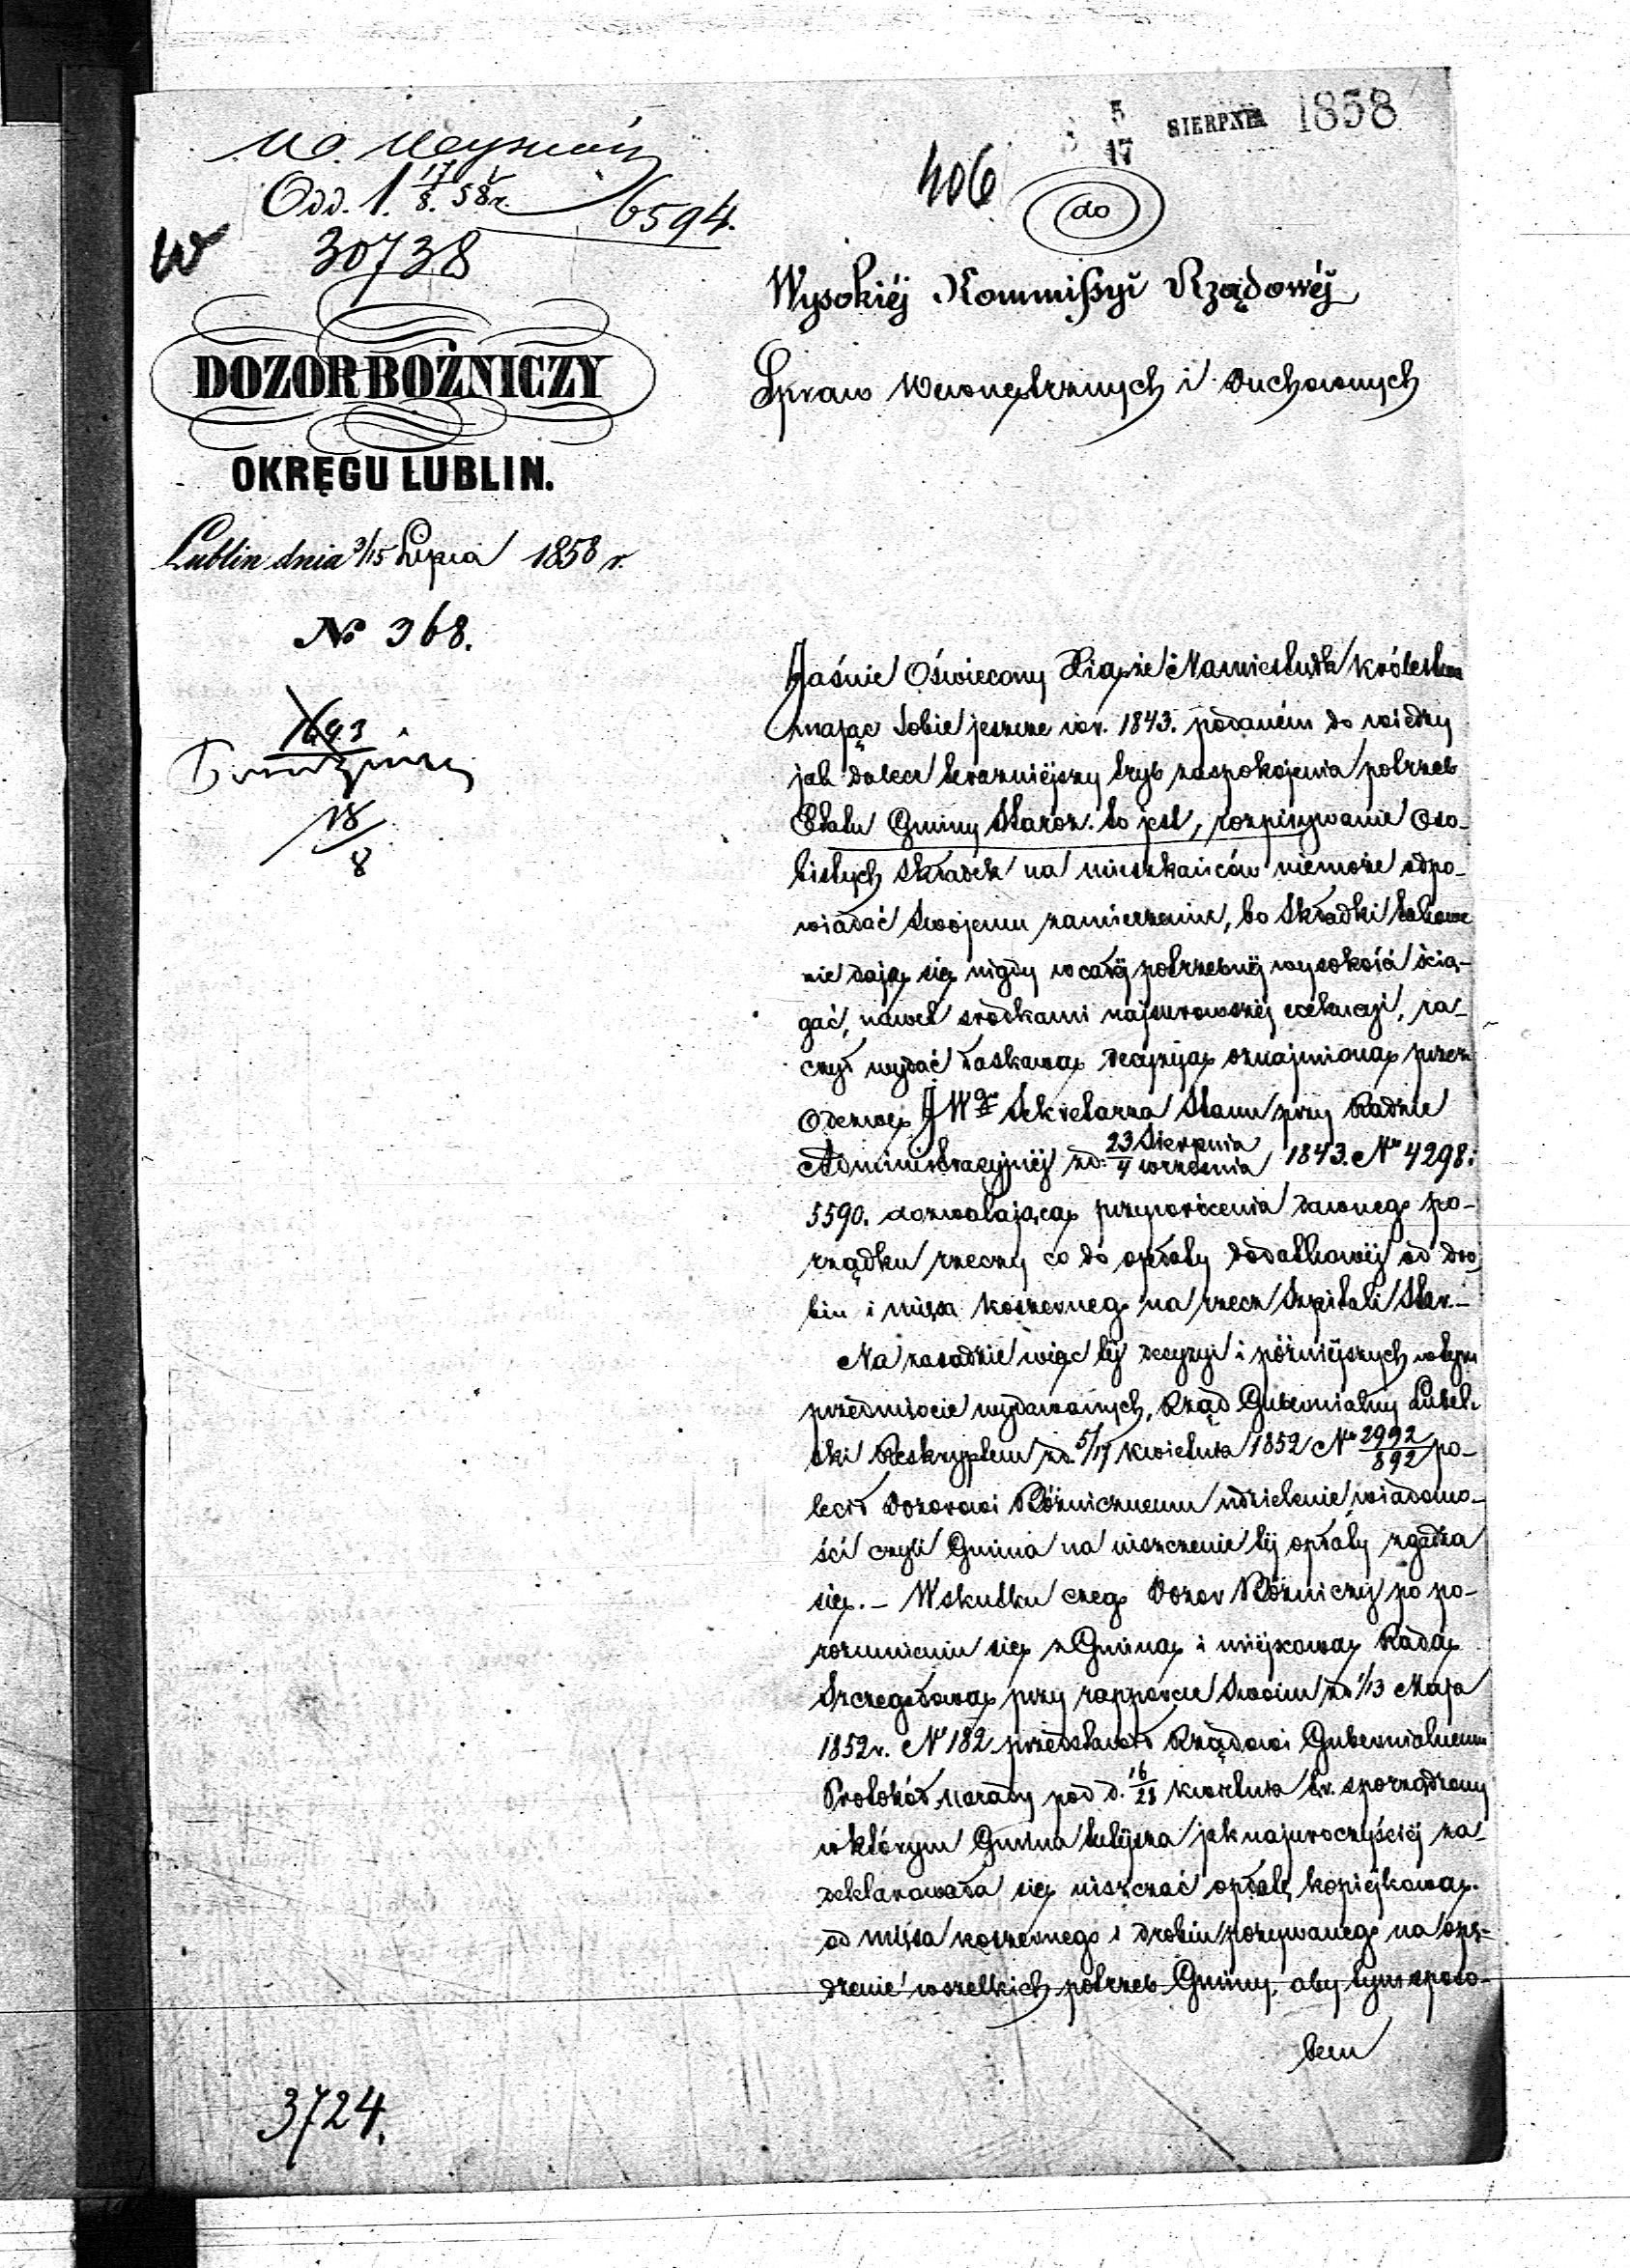 5/17 SIERPNIA 1858
406
Odd. 1. 17/8. 58 r. 6594.
W 30738
DOZOR BOŻNICZY
OKRĘGU LUBLIN.
Lublin dnia 3/15 Lipca 1858 r.
№ 368.
1693
18/8
do
Wysokiéj Kommissyi Rządowéj
Spraw Wewnętrznych i Duchownych
Jaśnie Oświecony Xiąże Namiestnik Królestwa
mając sobie jeszcze w r. 1843. podaném do wiedzy
jak dalece teraźniejszy tryb zaspokojenia potrzeb
Etatu Gminy Staroz. to jest, rozpisywanie Oso-
bistych składek na mieszkańców niemoże odpo-
wiadać swojemu zamierzeniu, bo składki takowe
nie dają się nigdy w całéj potrzebnéj wysokość ścią-
gać, nawet srodkami najsurowszéj exekucyi, ra-
czył wydać łaskawą decyzyją oznajmioną przez
Odezwę JWgo Sekretarza Stanu przy Radzie
Administracyjnéj z d. 23 Sierpnia/4 września 1843. No 4298.
5590. dozwalającą przywrócenia dawnego po-
rządku rzeczy co do opłaty dodatkowéj od dro-
biu i mięsa koszernego na rzecz Szpitali Star.-
Na zasadzie więc téj decyzyi i póżniejszych w tym
przedmiocie wydawanych, Rząd Gubernialny Lubel-
ski Reskryptem z d. 5/17 Kwietnia 1852 No 2992/892 po-
lecił Dozorowi Bóżnicznemu udzielenie wiadomo-
ści czyli Gmina na uiszczenie téj opłaty zgadza
się.- Wskutku czego Dozor Bóżniczy po po-
rozumieniu się z Gminą i miéjscową Radą
Szczegółową przy rapporcie swoim z d. 1/13 Maja
1852 r. No 182 przedstawił Rządowi Gubernialnemu
Protokół Narady pod d. 16/28 Kwietnia t.r. sporządzony
w którym Gmina tutéjsza jak najuroczyściéj za-
deklarowała się uiszczać opłatę kopiéjkową
od mięsa koszernego i drobiu pożywanego na opę-
dzenie wszelkich potrzeb Gminy, aby tym sposo-
bem
3724.